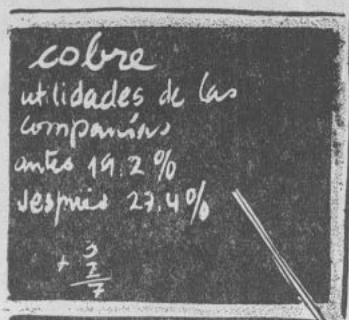 cobre
utilidades de las
compañías
antes 19.2 %
después 27.4 %
+ 5
2
7